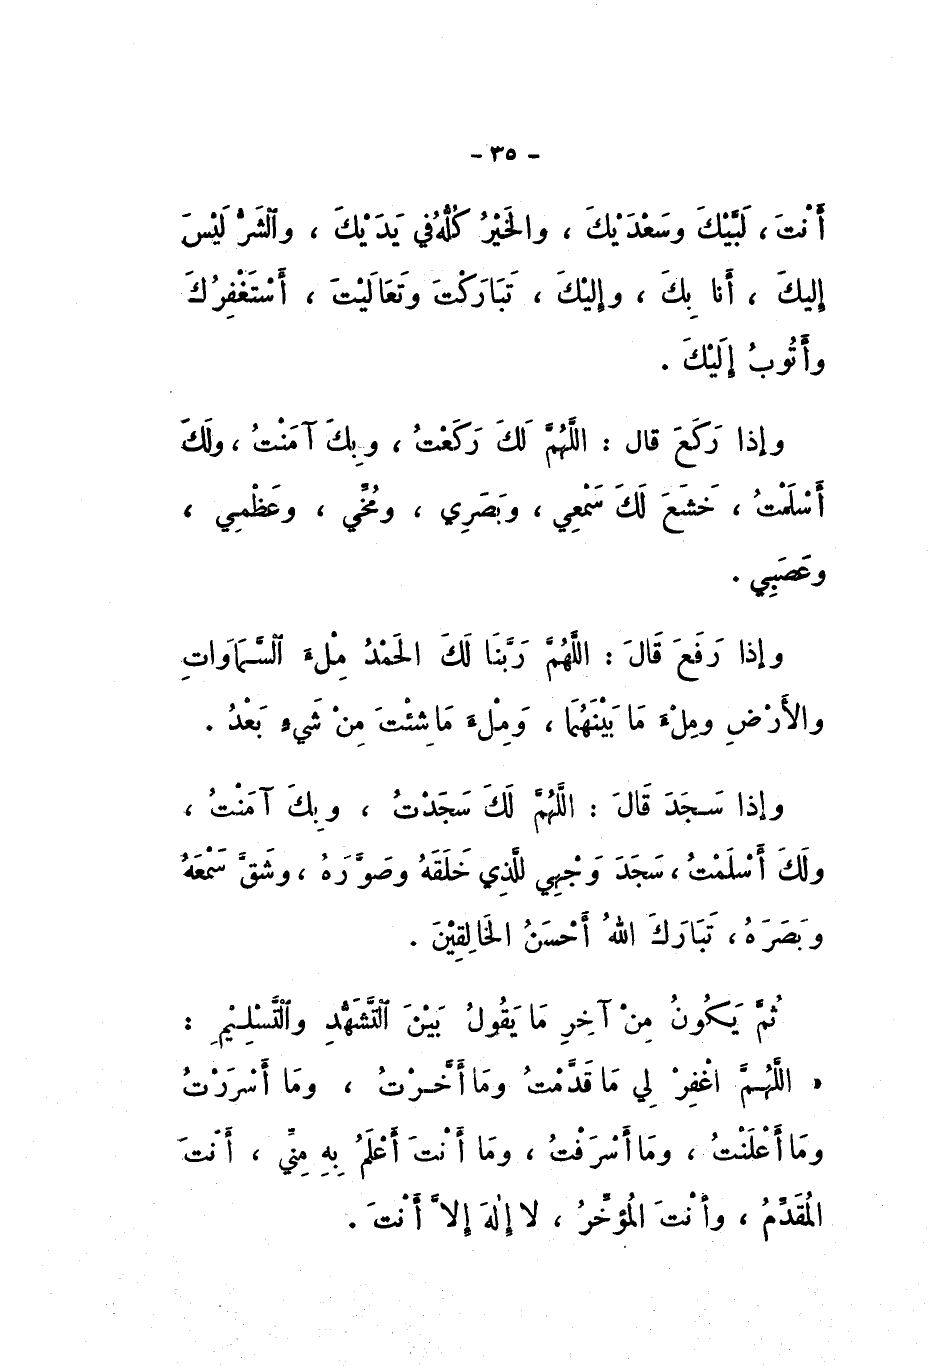 - ٣٥ -
أَنْتَ ، لَبَّيْكَ وسَعْدَيْكَ ، والخَيْرُ كُلُّهُ في يَدَيْكَ ، والشَرُّ لَيْسَ
إليكَ ، أَنا بِكَ ، وإِلَيْكَ ، تَبَارَكْتَ وتَعَالَيْتَ ، أَسْتَغْفِرُكَ
وأَتُوبُ إِلَيْكَ .
وإذا رَكَعَ قال : اللَّهُمَّ لَكَ رَكَعْتُ ، وبِكَ آمَنْتُ ، ولَكَ
أَسْلَمْتُ ، خَشَعَ لَكَ سَمْعِي ، وبَصَرِي ، ومُخِّي ، وعَظْمِي ،
وعَصَبِي .
وإذا رَفَعَ قَالَ : اللَّهُمَّ رَبَّنَا لَكَ الحَمْدُ مِلْءَ ٱلسَّمَاوَاتِ
والأَرْضِ ومِلْءَ مَا بَيْنَهُمَا ، وَمِلْءَ مَا شِئْتَ مِنْ شَيءٍ بَعْدُ .
وإذا سَجَدَ قَالَ : اللَّهُمَّ لَكَ سَجَدْتُ ، وبِكَ آمَنْتُ ،
ولَكَ أَسْلَمْتُ ، سَجَدَ وَجْهِي لِلَّذِي خَلَقَهُ وصَوَّرَهُ ، وشَقَّ سَمْعَهُ
وبَصَرَهُ ، تَبَارَكَ اللهُ أَحْسَنُ الخَالِقِيْنَ .
ثُمَّ يَكُونُ مِنْ آخِرِ مَا يَقُولُ بَيْنَ ٱلتَّشَهُّدِ وٱلتَّسْلِيْمِ :
« اللَّهُمَّ اغْفِرْ لِي مَا قَدَّمْتُ ومَا أَخَّرْتُ ، ومَا أَسْرَرْتُ
ومَا أَعْلَنْتُ ، ومَا أَسْرَفْتُ ، ومَا أَنْتَ أَعْلَمُ بِهِ مِنِّي ، أَنْتَ
المُقَدِّمُ ، وأَنْتَ المُؤَخِّرُ ، لا إِلٰهَ إِلاَّ أَنْتَ .